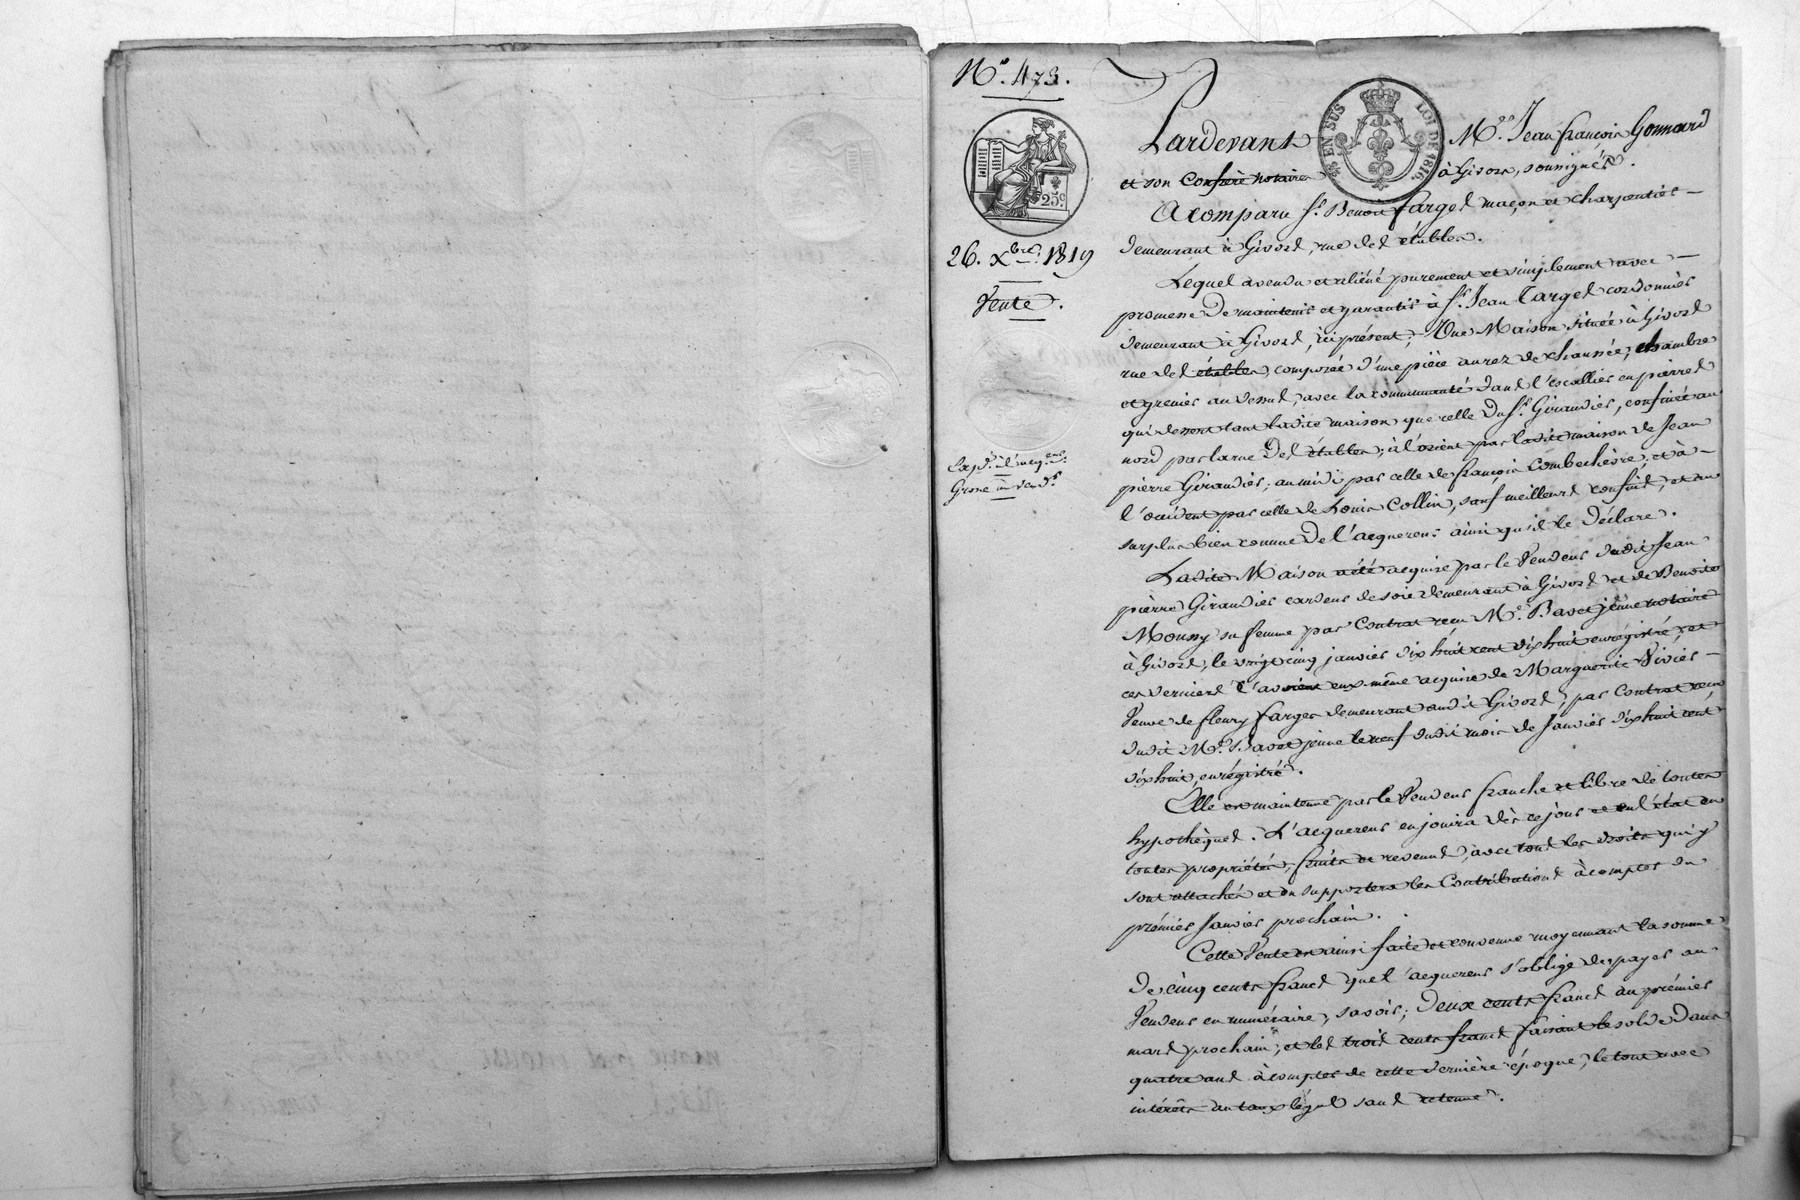 N.º 473.
25.c
26. Xbre. 1819
Vente.
Exp.on à l'acq.eur.
Grosse au vend.r
EN SUS
LOI DE 1816.
Pardevant M.e Jean françois Gonnard
et son Confrère notaires à Givors, soussignés.
A comparu S.r Benoit fargel maçon et charpentier
demeurant à Givors, rue des étables.
Lequel a vendu et aliéné purement et simplement avec
promesse de maintenir et garantir à S.r Jean Targel cordonnier
demeurant à Givors, ici présent; Une Maison située à Givors
rue des étables, composée d'une pièce au rez de chaussée, chambre
et grenier au dessus, avec la communauté dans l'escallier en pierres
qui dessert tant ladite maison que celle du S.r Giraudier, confinés au
nord par la rue des étables; à l'orient par ladite maison de Jean
pierre Giraudier; au midi par celle de françois Combechèvre, et à
l'occident par celle de Louis Collin, sauf meilleurs confins, et au
surplus bien connue de l'acquereur ainsi qu'il le déclare.
Ladite Maison a été acquise par le Vendeur dudit Jean
pierre Giraudier cardeur de soie demeurant à Givors et de Benoite
Moussy sa femme par Contrat reçu M.e Bavet jeune notaire
à Givors, le vingt cinq janvier dix huit cent dix huit enrégistré, et
ces derniers l'avoient eux même acquise de Marguerite Vivier
Veuve de fleury farges demeurant audit Givors, par Contrat reçu
dudit M.e Bavet jeune le neuf dudit mois de Janvier dix huit cent
dix huit, enrégistré.
Elle est maintenue par le Vendeur franche et libre de toutes
hypothèques. L'acquereur en jouira dès ce jour et en l'état en
toutes propriétés, fruits et revenus, avec tous les droits qui y
sont attachés et en supportera les Contributions à compter du
prémier Janvier prochain.
Cette Vente est ainsi faite et convenue moyennant la somme
de cinq cents francs que l'acquereur s'oblige de payer au
Vendeur en numéraire, savoir; deux cents francs au prémier
mars prochain, et les trois cents francs faisant le solde dans
quatre ans à compter de cette dernière époque, le tout avec
intérêts au taux légal sans retenue.